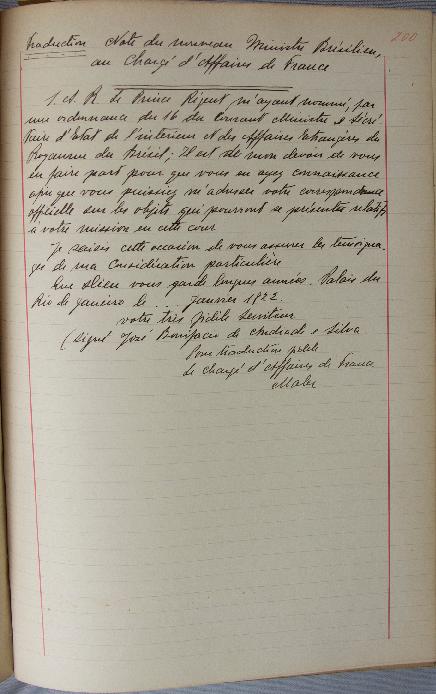 200
Traduction Note du nouveau Ministre Brésilien,
au Chargé d'Affaires de France
S. A. R. Le Prince Régent m'ayant nommé, par
une ordonnance du 16 du Courant Ministre & Sécré
taire d'Etat de l'intérieur et des Affaires Etrangères du
Royaume du Brésil; Il est de mon devoir de vous
en faire part pour que vous en ayez connaissance
afin que vous puissiez m'adresser votre correspondance
officielle sur les objets qui pourront se présenter relatifs
à votre mission en cette cour
Je saisis cette occasion de vous assurer les témoigna
ges de ma Considération particulière
Que Dieu vous garde longues années. Palais du
Rio de Janeiro le ... Janvier 1822.
votre très fidèle Serviteur
(Signé José Bonifacio de Andrade e Silva
Pour traduction fidèle
Le chargé d'Affaires de France
Maler